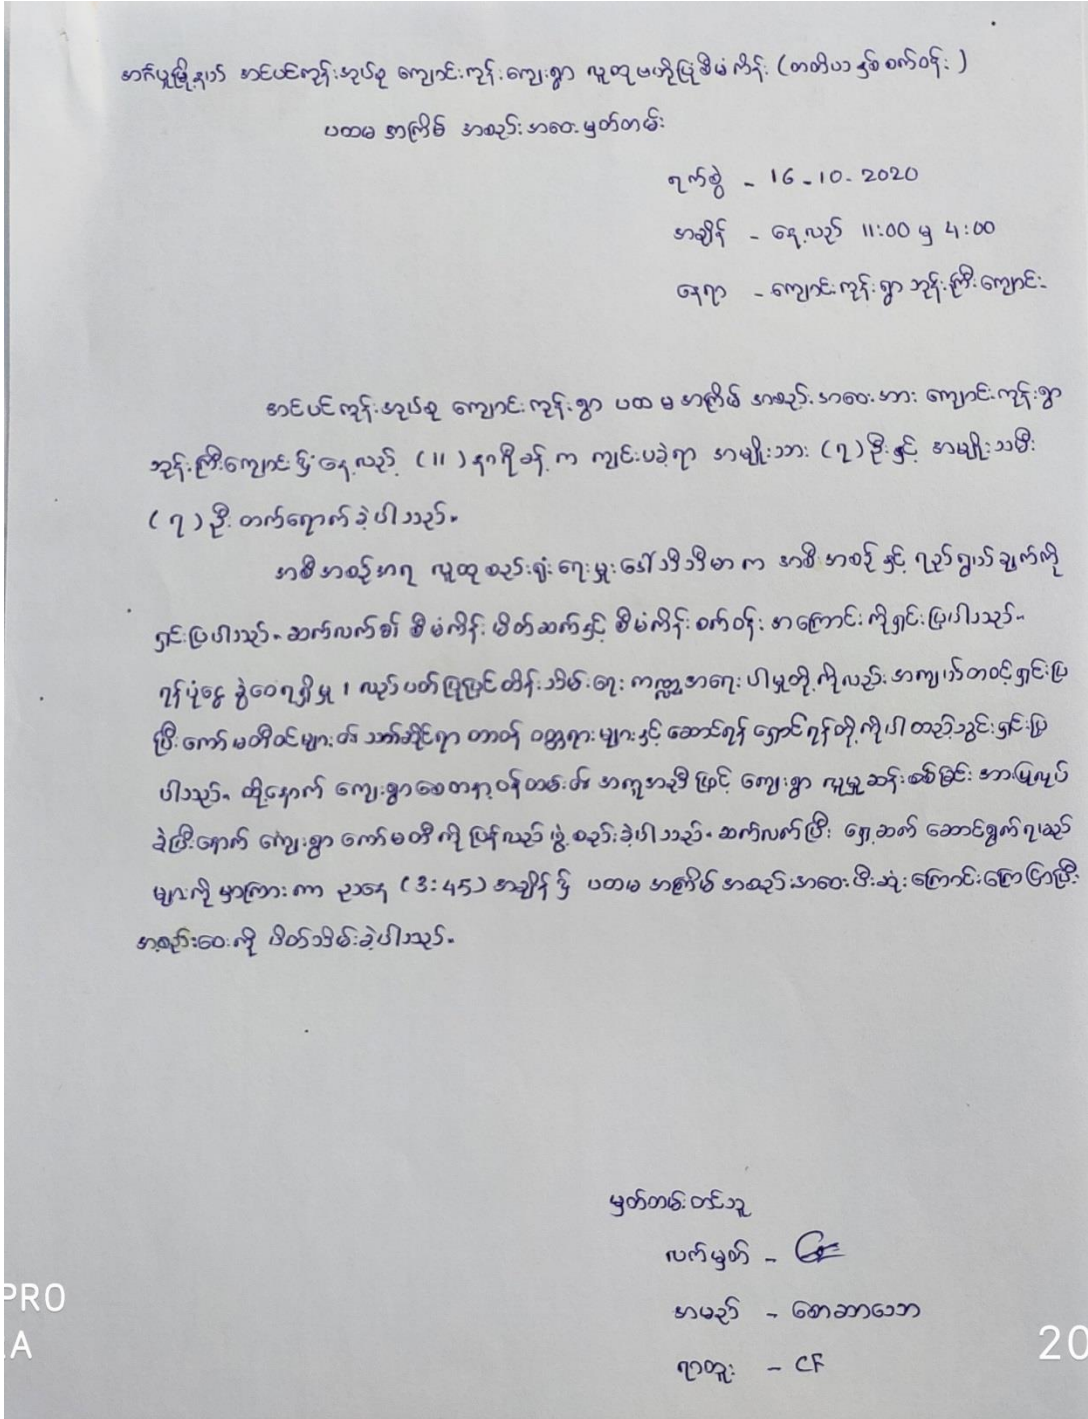 အင်္ဂပူမြို့နယ် အင်ပင်ကုန်းအုပ်စု ကျောင်းကုန်းကျေးရွာ လူထုဗဟိုပြုစီမံကိန်း (တတိယနှစ်စက်ဝန်း)
ပထမ အကြိမ် အစည်းအဝေးမှတ်တမ်း
ရက်စွဲ - 16-10-2020
အချိန် - နေ့လည် 11:00 မှ 4:00
နေရာ - ကျောင်းကုန်းရွာ ဘုန်းကြီးကျောင်း
အင်ပင်ကုန်းအုပ်စု ကျောင်းကုန်းရွာ ပထမအကြိမ် အစည်းအဝေးအား ကျောင်းကုန်းရွာ
ဘုန်းကြီးကျောင်း၌ နေ့လည် (11) နာရီခန့်က ကျင်းပခဲ့ရာ အမျိုးသား (၇) ဦးနှင့် အမျိုးသမီး
(၇) ဦး တက်ရောက်ခဲ့ပါသည်။
အစီအစဉ်အရ လူထုစည်းရုံးရေးမှူး ဒေါ်သီသီမာ က အစီအစဉ်နှင့် ရည်ရွယ်ချက်ကို
ရှင်းပြပါသည်။ ဆက်လက်၍ စီမံကိန်း မိတ်ဆက်နှင့် စီမံကိန်းစက်ဝန်း အကြောင်းကိုရှင်းပြပါသည်။
ရန်ပုံငွေ ခွဲဝေရရှိမှု ၊ လည်ပတ်ပြုပြင်ထိန်းသိမ်းရေး ကဏ္ဍအရေးပါမှုတို့ကိုလည်း အကျယ်တဝင့်ရှင်းပြ
ပြီး ကော်မတီဝင်များ၏ သက်ဆိုင်ရာ တာဝန် ဝတ္တရားများနှင့် ဆောင်ရန် ရှောင်ရန်တို့ကိုပါ ထည့်သွင်းရှင်းပြ
ပါသည်။ ထို့နောက် ကျေးရွာစေတနာ့ဝန်ထမ်း၏ အကူအညီဖြင့် ကျေးရွာ လူမှုဆန်းစစ်ခြင်းအား ပြုလုပ်
ခဲ့ပြီးနောက် ကျေးရွာ ကော်မတီကို ပြန်လည် ဖွဲ့စည်းခဲ့ပါသည်။ ဆက်လက်ပြီး ရှေ့ဆက် ဆောင်ရွက်ရမည်
များကို မှာကြားကာ ညနေ (3:45) အချိန်၌ ပထမ အကြိမ် အစည်းအဝေးပြီးဆုံးကြောင်းကြေငြာပြီး
အစည်းဝေးကို ပိတ်သိမ်းခဲ့ပါသည်။
မှတ်တမ်းတင်သူ
လက်မှတ် -
အမည် - စောဆာသော
ရာထူး - CF
PRO
20